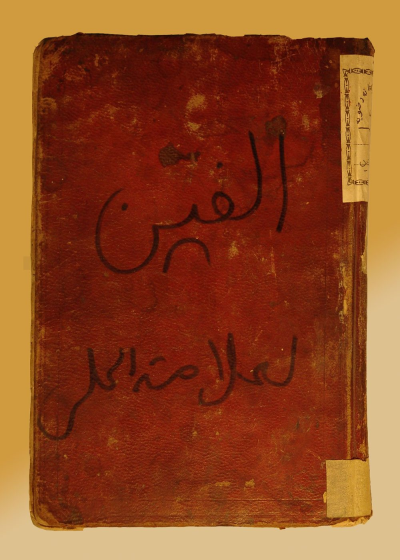 الفین
لعلامة الحلی